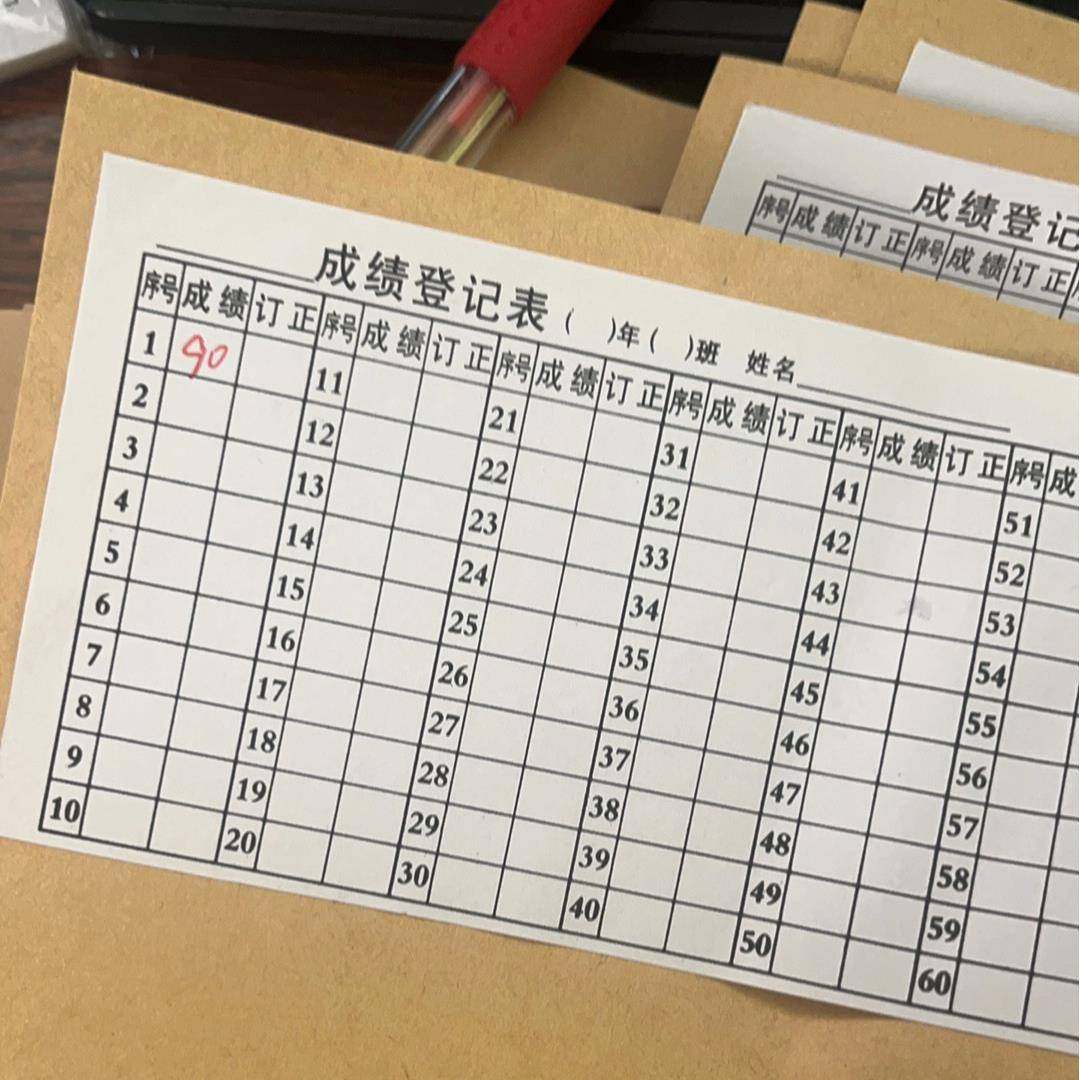 成绩登记表（ ）年（ ）班 姓名
序号 成绩 订正 序号 成绩 订正 序号 成绩 订正 序号 成绩 订正 序号 成绩 订正 序号 成
1 90 11 21 31 41 51
2 12 22 32 42 52
3 13 23 33 43 53
4 14 24 34 44 54
5 15 25 35 45 55
6 16 26 36 46 56
7 17 27 37 47 57
8 18 28 38 48 58
9 19 29 39 49 59
10 20 30 40 50 60
成绩登记
序号 成绩 订正 序号 成绩 订正